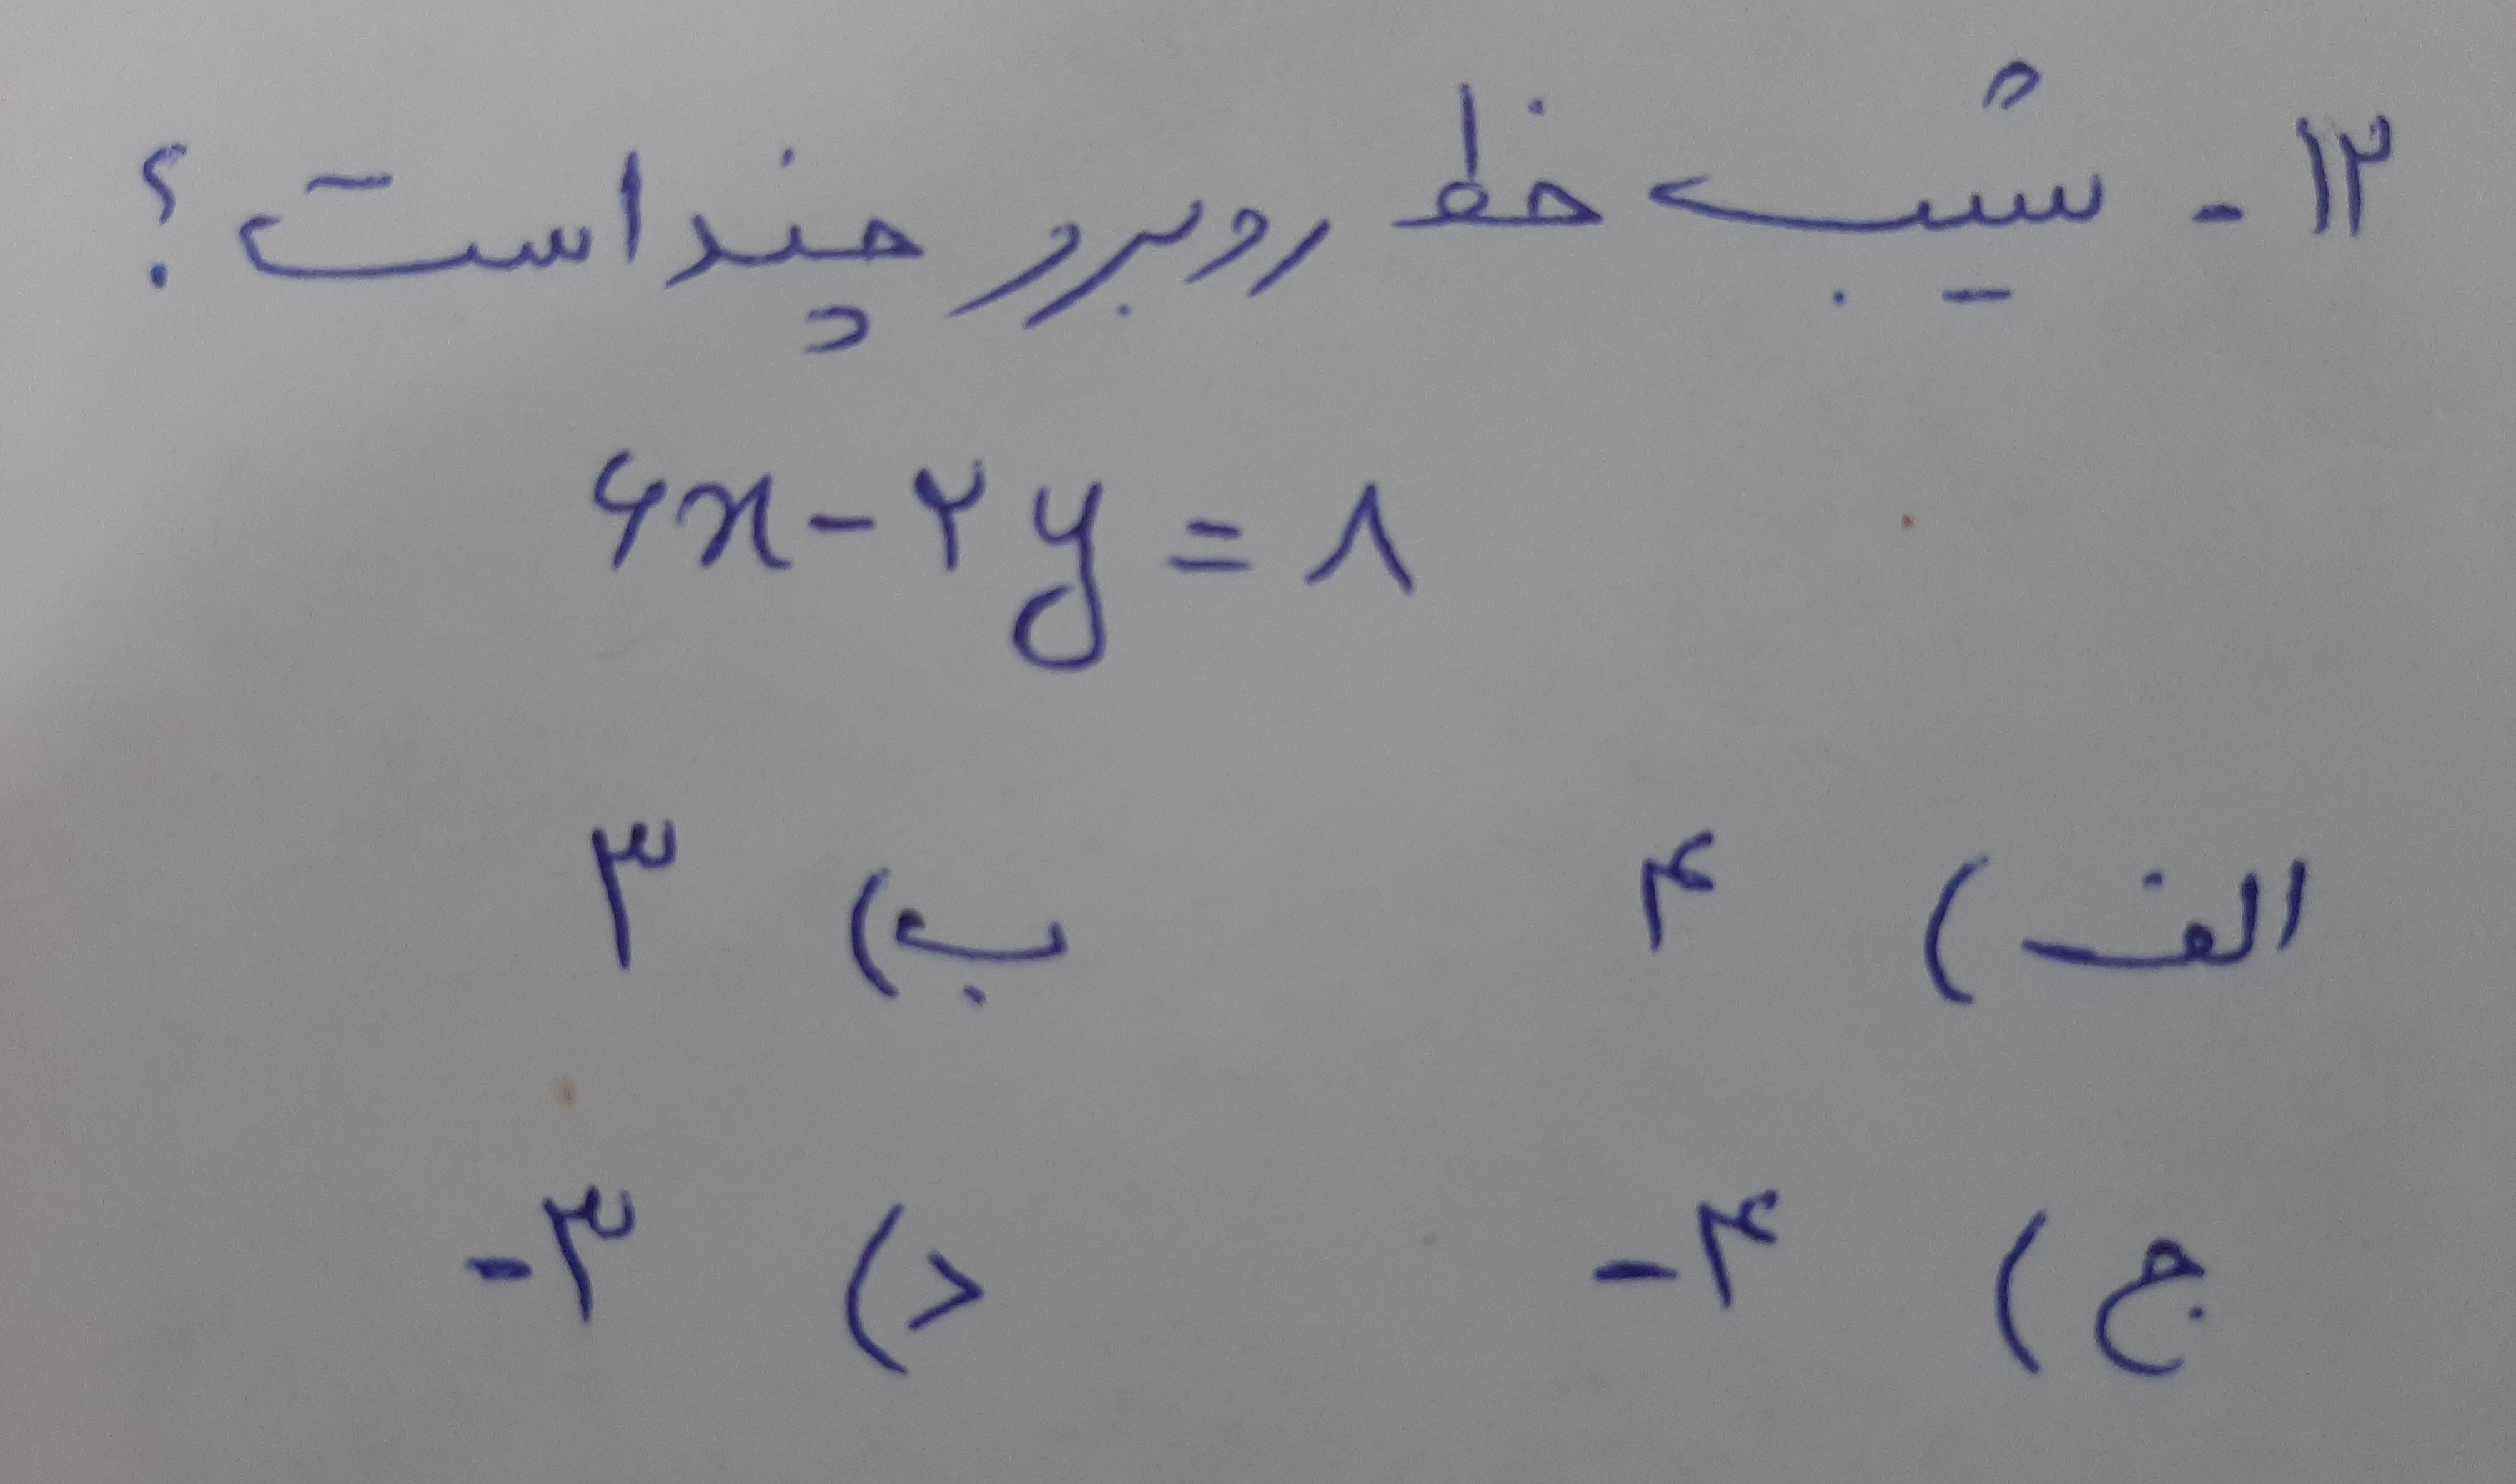 ۱۲- شیب خط روبرو چند است؟
۶x - ۲y = ۸
الف) ۴ ب) ۳
ج) -۴ د) -۳